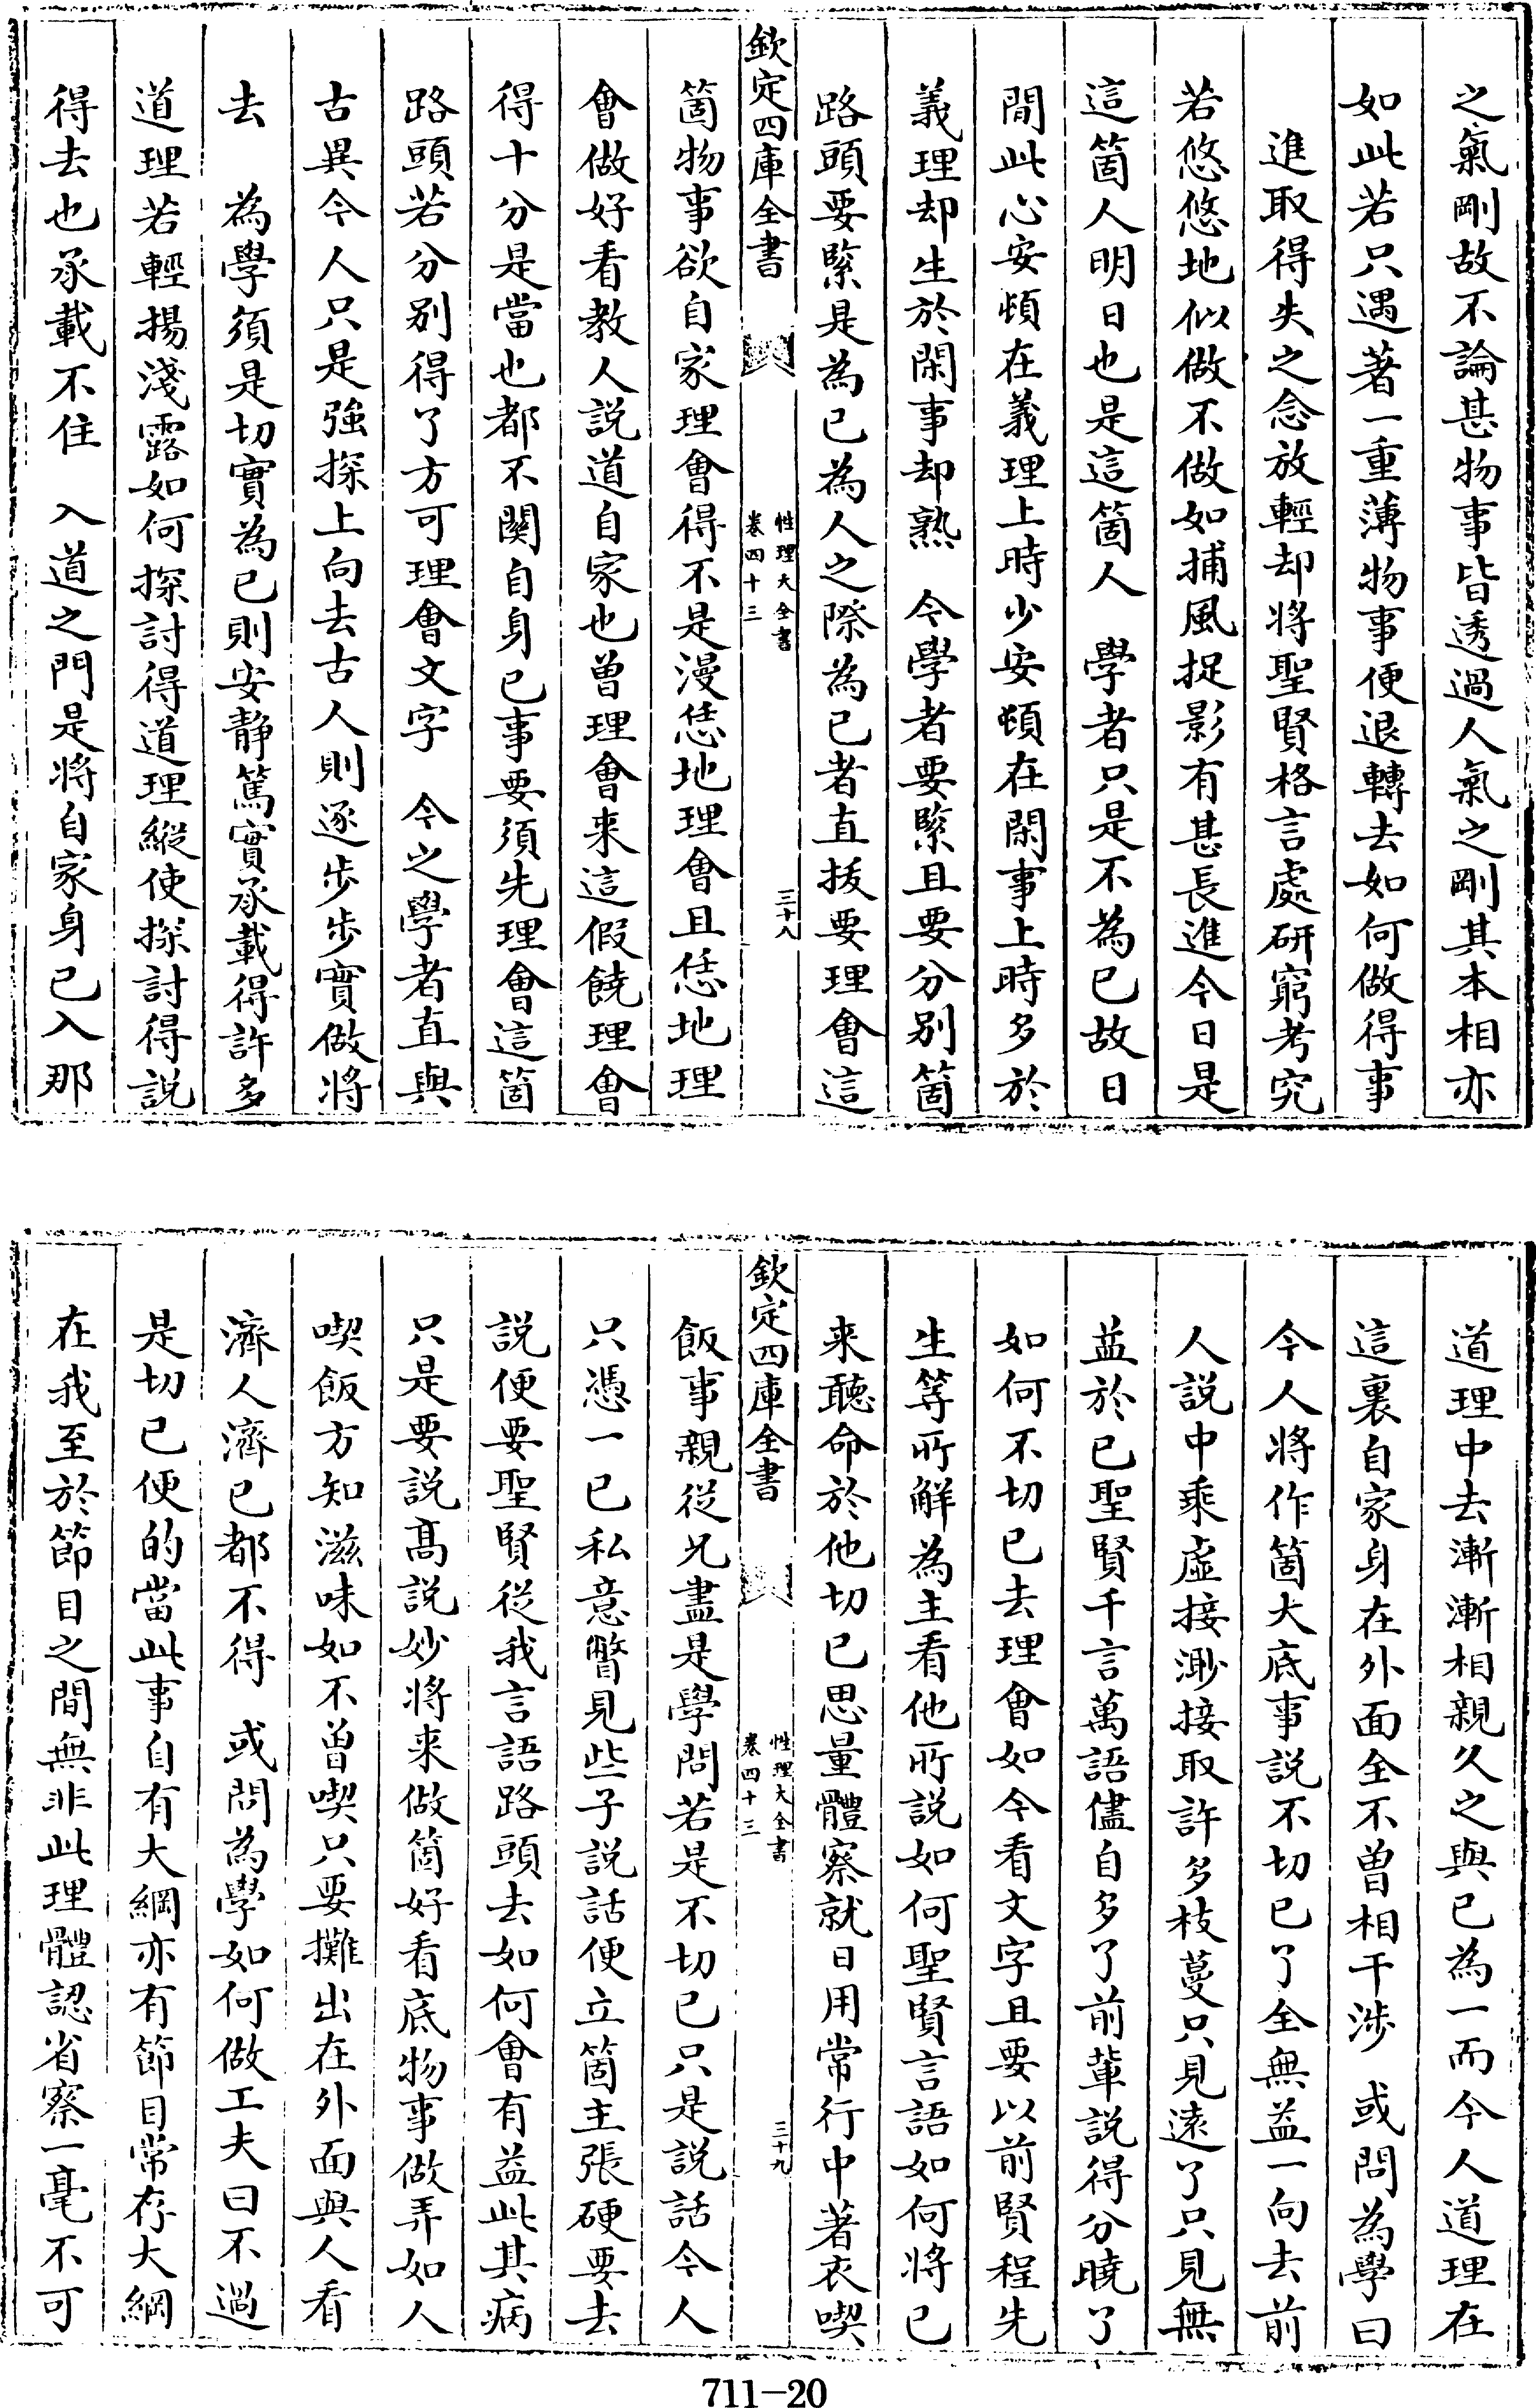 之氣剛故不論甚物事皆透過人氣之剛其本相亦
如此若只遇著一重薄物事便退轉去如何做得事
進取得失之念放輕却將聖賢格言處研窮考究
若悠悠地似做不做如捕風捉影有甚長進今日是
這箇人明日也是這箇人　學者只是不為已故日
間此心安頓在義理上時少安頓在閑事上時多於
義理却生於閑事却熟　今學者要緊且要分别箇
路頭要緊是為已為人之際為已者直拔要理會這
欽定四庫全書
性理大全書
卷四十三
三十八
箇物事欲自家理會得不是漫恁地理會且恁地理
會做好看教人説道自家也曽理會来這假饒理會
得十分是當也都不闗自身已事要須先理會這箇
路頭若分别得了方可理會文字　今之學者直與
古異今人只是強探上向去古人則逐步步實做將
去　為學須是切實為已則安靜篤實承載得許多
道理若輕揚淺露如何探討得道理縱使探討得説
得去也承載不住　入道之門是將自家身已入那
道理中去漸漸相親久之與已為一而今人道理在
這裏自家身在外面全不曽相干涉　或問為學曰
今人將作箇大底事説不切已了全無益一向去前
人説中乘虚接渺接取許多枝蔓只見逺了只見無
益於已聖賢千言萬語儘自多了前輩説得分曉了
如何不切已去理會如今看文字且要以前賢程先
生等所解為主看他所説如何聖賢言語如何將已
来聽命於他切已思量體察就日用常行中著衣喫
欽定四庫全書
性理大全書
卷四十三
三十九
飯事親從兄盡是學問若是不切已只是説話今人
只憑一已私意瞥見些子説話便立箇主張硬要去
説便要聖賢從我言語路頭去如何會有益此其病
只是要説髙説妙將来做箇好看底物事做弄如人
喫飯方知滋味如不曽喫只要攤出在外面與人看
濟人濟已都不得　或問為學如何做工夫曰不過
是切已便的當此事自有大綱亦有節目常存大綱
在我至於節目之間無非此理體認省察一毫不可
711-20